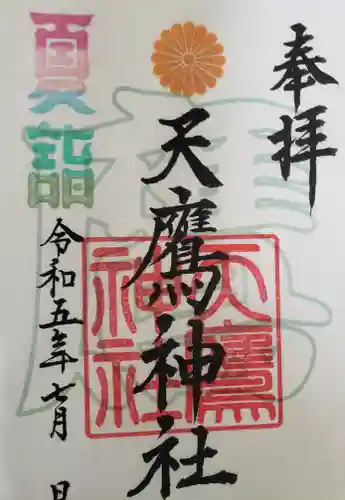 奉拝
天鷹神社
天鷹
神社
夏詣
令和五年七月 日